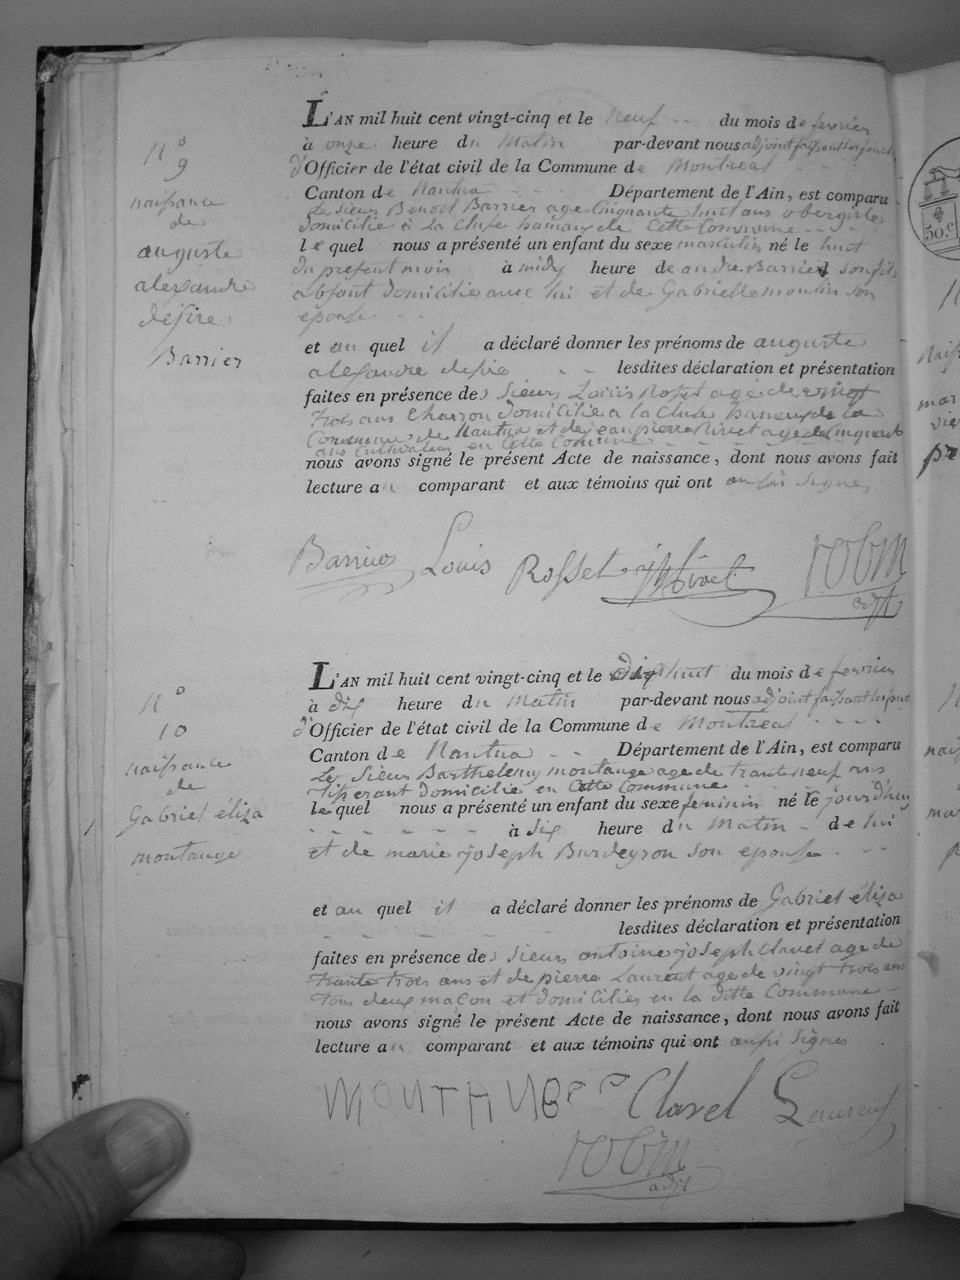 N° 9
naissance
de
auguste
alexandre
desire
Barrier
L'AN mil huit cent vingt-cinq et le neuf du mois de fevrier
à onze heure du Matin par-devant nous adjoint faisant
d'Officier de l'état civil de la Commune de Montreal
Canton de Nantua Département de l'Ain, est comparu
Le Sieur Benoit Barrier age Cinquante huit ans obergiste
domicilié à La Cluse hameau de Cette Commune
le quel nous a présenté un enfant du sexe masculin né le huit
du present mois à midy heure de andre Barrier son fils
absant domicilié avec lui et de Gabrielle moulin son
epouse
et au quel il a déclaré donner les prénoms de auguste
alexandre desire lesdites déclaration et présentation
faites en présence des sieurs Louis Rosset agé de vingt
trois ans Charron domicilié a la Cluse hameau de la
Commune de Nantua et de jean pierre Nivet age de Cinquante
ans Cultivateur en Cette Commune
nous avons signé le présent Acte de naissance, dont nous avons fait
lecture au comparant et aux témoins qui ont aussi signes
Barrier Louis Rosset
adjt
N° 10
naissance
de
Gabriel éliza
montange
L'AN mil huit cent vingt-cinq et le dix huit du mois de fevrier
à dix heure du Matin par-devant nous adjoint faisant
d'Officier de l'état civil de la Commune de Montréal
Canton de Nantua Département de l'Ain, est comparu
Le Sieur Barthelemy montange age de trante neuf ans
Tisserant domicilié en Cette Commune
le quel nous a présenté un enfant du sexe feminin né le jourd'huy
à six heure du Matin de lui
et de marie joseph Burdeyron son epouse
et au quel il a déclaré donner les prénoms de Gabriel éliza
lesdites déclaration et présentation
faites en présence des sieurs antoine joseph Clavel age de
trante trois ans et de pierre Laurent age de vingt trois ans
Tous deux maçon et domiciliés en la ditte Commune
nous avons signé le présent Acte de naissance, dont nous avons fait
lecture au comparant et aux témoins qui ont aussi signes
Clavel Laurent
adjt
50 C